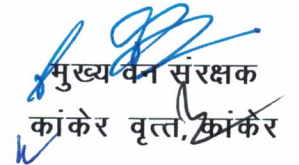 मुख्य वन संरक्षक
कांकेर वृत्त, कांकेर